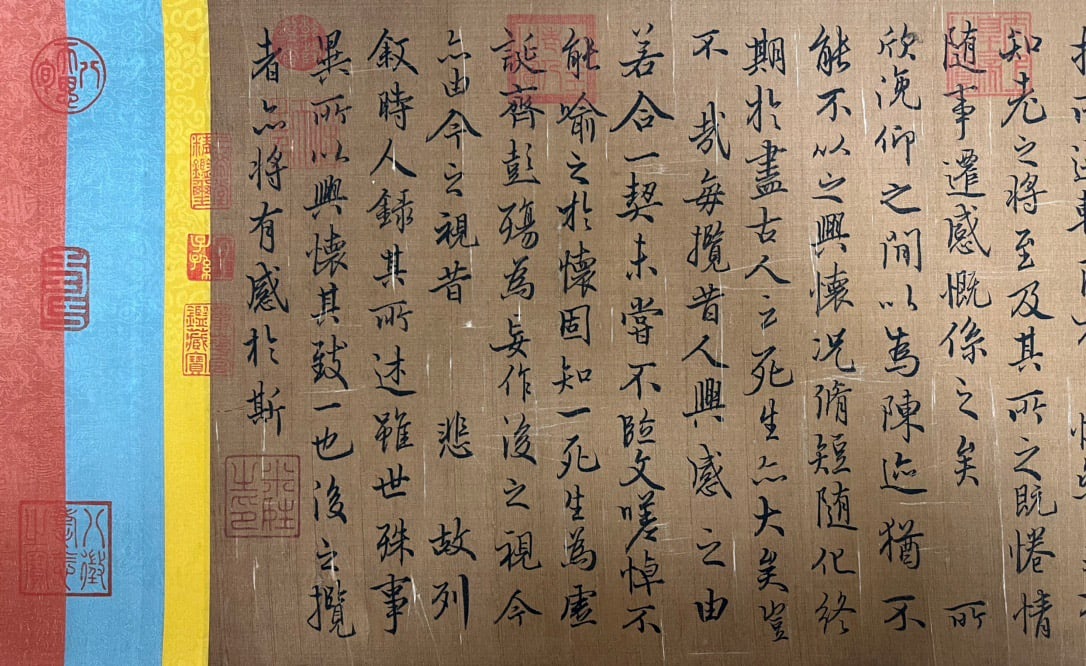 知老之将至及其所之既惓情
随事遷感慨係之矣 所
欣俛仰之間以為陳迹猶不
能不以之興懷况脩短随化終
期於盡古人云死生亦大矣豈
不 哉每攬昔人興感之由
若合一契未嘗不臨文嗟悼不
能喻之於懷固知一死生為虚
誕齊彭殤為妄作後之視今
亦由今之視昔 悲 故列
叙時人録其所述雖世殊事
異所以興懷其致一也後之攬
者亦将有感於斯
精鑑璽
子孫
鑑藏寶